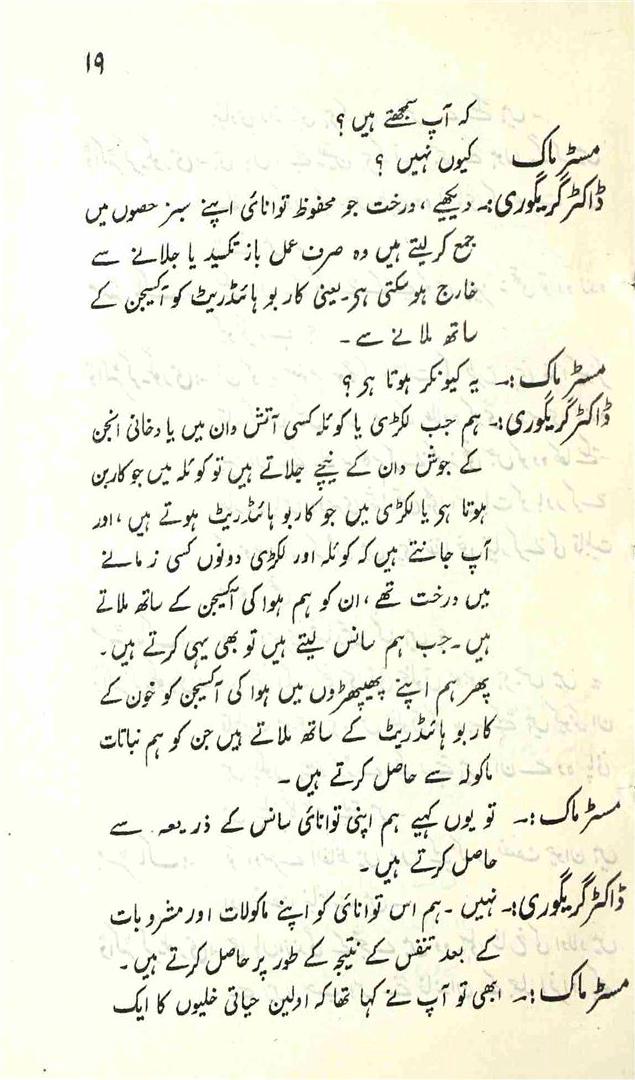 ۱۹
کہ آپ سمجھتے ہیں؟
مسٹر ماک کیوں نہیں؟
ڈاکٹر گریگوری:۔ دیکھیے، درخت جو محفوظ توانائی اپنے سبز حصوں میں
جمع کر لیتے ہیں وہ صرف عمل باز تکسید یا جلانے سے
خارج ہوسکتی ہی۔ یعنی کاربو ہائڈریٹ کو آکسیجن کے
ساتھ ملانے سے۔
مسٹر ماک:۔ یہ کیونکر ہوتا ہی؟
ڈاکٹر گریگوری:۔ ہم جب لکڑی یا کوئلہ کسی آتش دان میں یا دخانی انجن
کے جوش دان کے نیچے جلاتے ہیں تو کوئلہ میں جو کاربن
ہوتا ہی یا لکڑی میں جو کاربو ہائڈریٹ ہوتے ہیں، اور
آپ جانتے ہیں کہ کوئلہ اور لکڑی دونوں کسی زمانے
میں درخت تھے، ان کو ہم ہوا کی آکسیجن کے ساتھ ملاتے
ہیں۔ جب ہم سانس لیتے ہیں تو بھی یہی کرتے ہیں۔
پھر ہم اپنے پھیپھڑوں میں ہوا کی آکسیجن کو خون کے
کاربو ہائڈریٹ کے ساتھ ملاتے ہیں جن کو ہم نباتات
ماکولہ سے حاصل کرتے ہیں۔
مسٹر ماک:۔ تو یوں کہیے ہم اپنی توانائی سانس کے ذریعہ سے
حاصل کرتے ہیں۔
ڈاکٹر گریگوری:۔ نہیں۔ ہم اس توانائی کو اپنے ماکولات اور مشروبات
کے بعد تنفس کے نتیجہ کے طور پر حاصل کرتے ہیں۔
مسٹر ماک:۔ ابھی تو آپ نے کہا تھا کہ اولین حیاتی خلیوں کا ایک